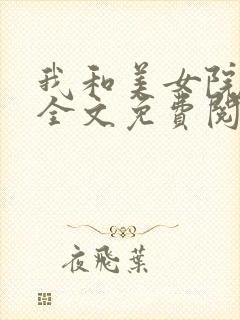 我和美女院
全文免费阅
夜飛葉